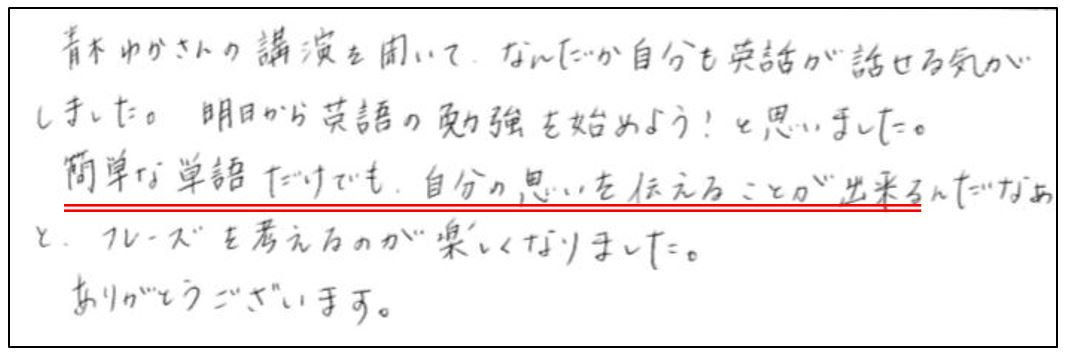 青木ゆかさんの講演を聞いて、なんだか自分も英話が話せる気が
しました。明日から英語の勉強を始めよう！と思いました。
簡単な単語だけでも、自分の思いを伝えることが出来るんだなぁ
と、フレーズを考えるのが楽しくなりました。
ありがとうございます。